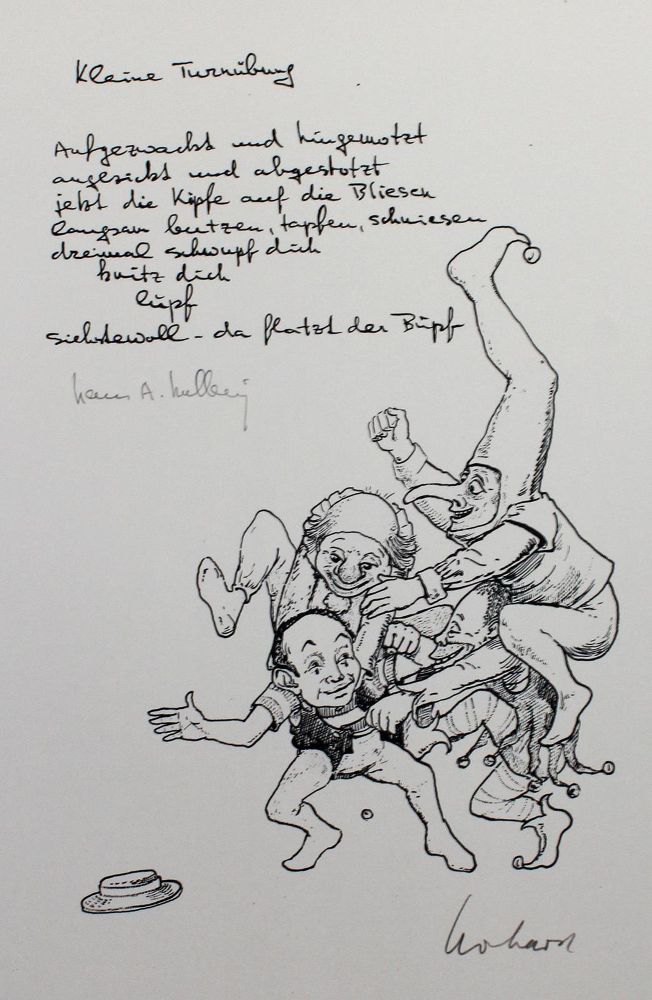 Kleine Turnübung
Aufgezwackt und hingemotzt
angezickt und abgestotzt
jetzt die Kipfe auf die Bliesen
langsam butzen, tapfen, schniesen
dreimal schwupf dich
knitz dich
lüpf
siehstewoll - da flatzt der Büpf
Hans A.